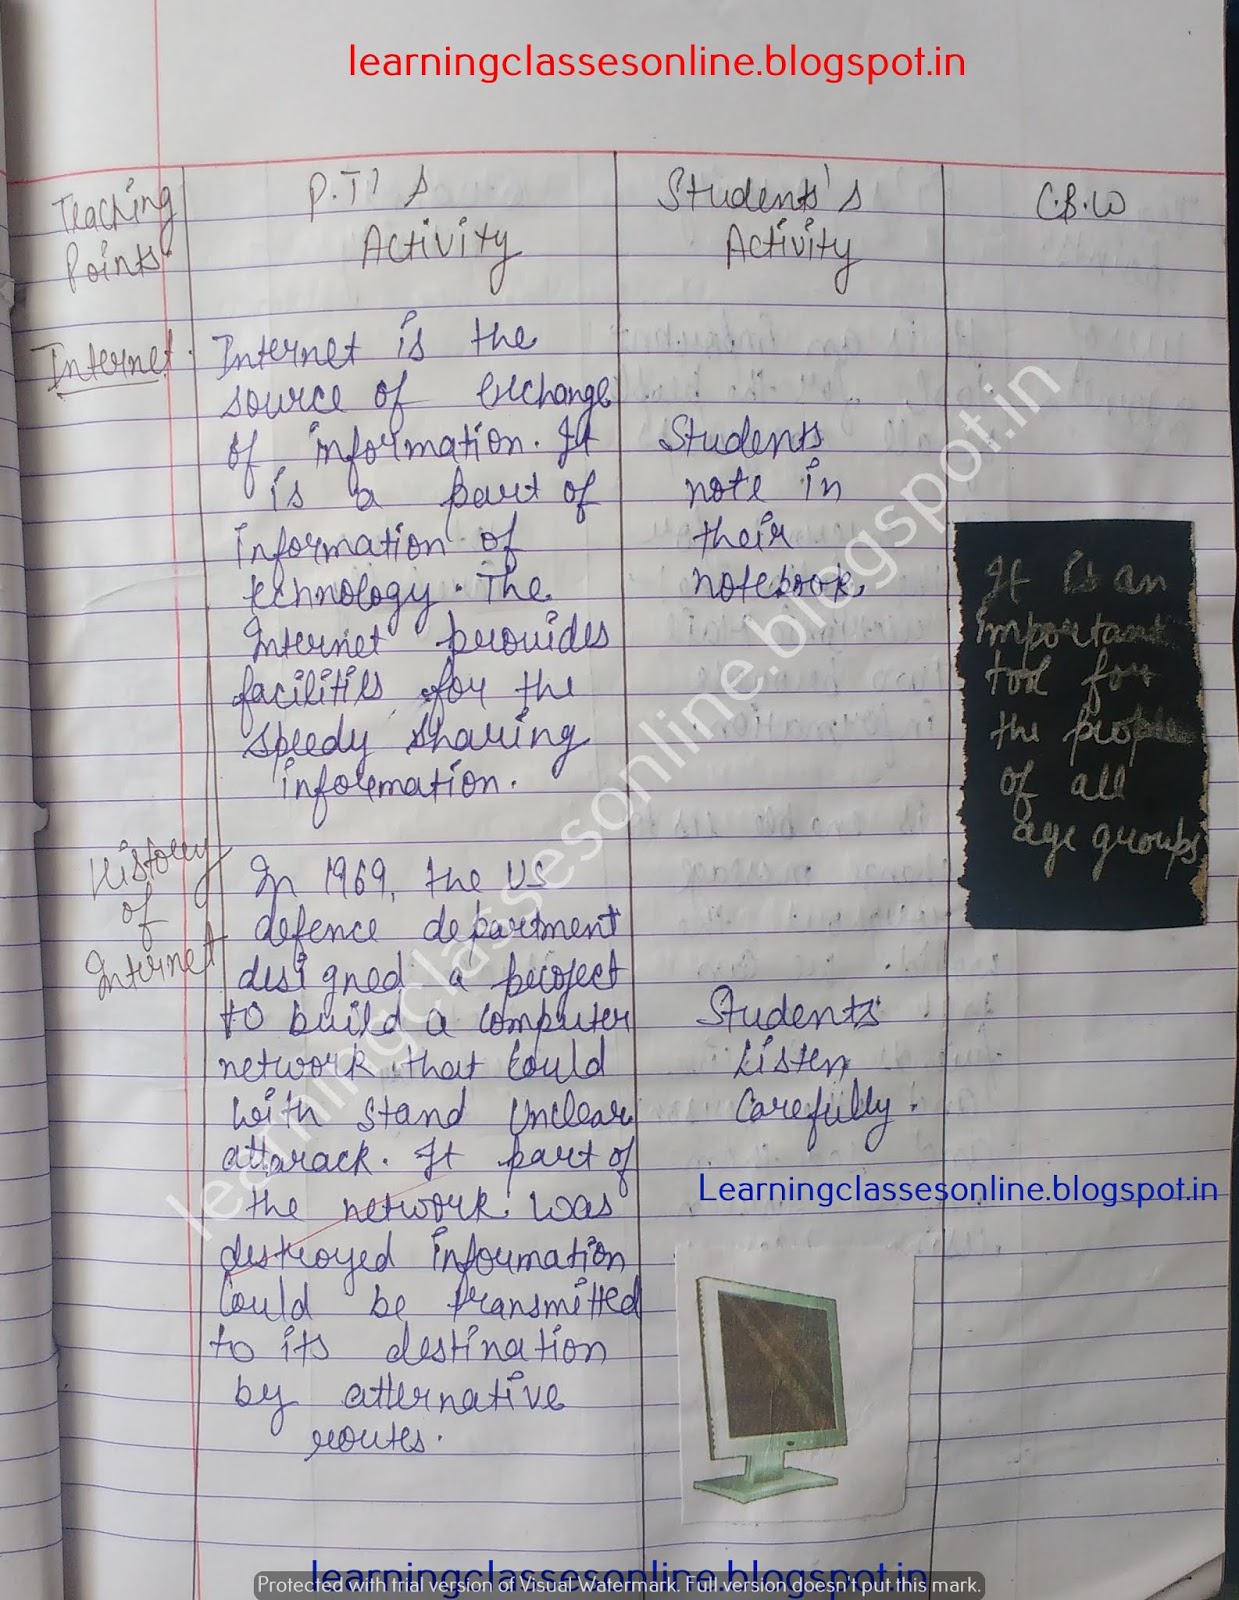 learningclassesonline.blogspot.in
Teaching
Points
P.T's
Activity
Students's
Activity
C.B.W
Internet.
Internet is the
source of exchange
of information. It
is a part of
information of
technology. The
Internet provides
facilities for the
speedy sharing
information.
Students
note in
their
notebook.
It is an
important
tool for
the people
of all
age groups
History
of
Internet
In 1969, the US
defence department
designed a project
to build a computer
network that could
with stand unclear
attarack. It part of
the network was
destroyed information
could be transmitted
to its destination
by atternative
routes.
Students
Listen
Carefully.
Learningclassesonline.blogspot.in
learningclassesonline.blogspot.in
learningclassesonline.blogspot.in
Protected with trial version of Visual Watermark. Full version doesn't put this mark.